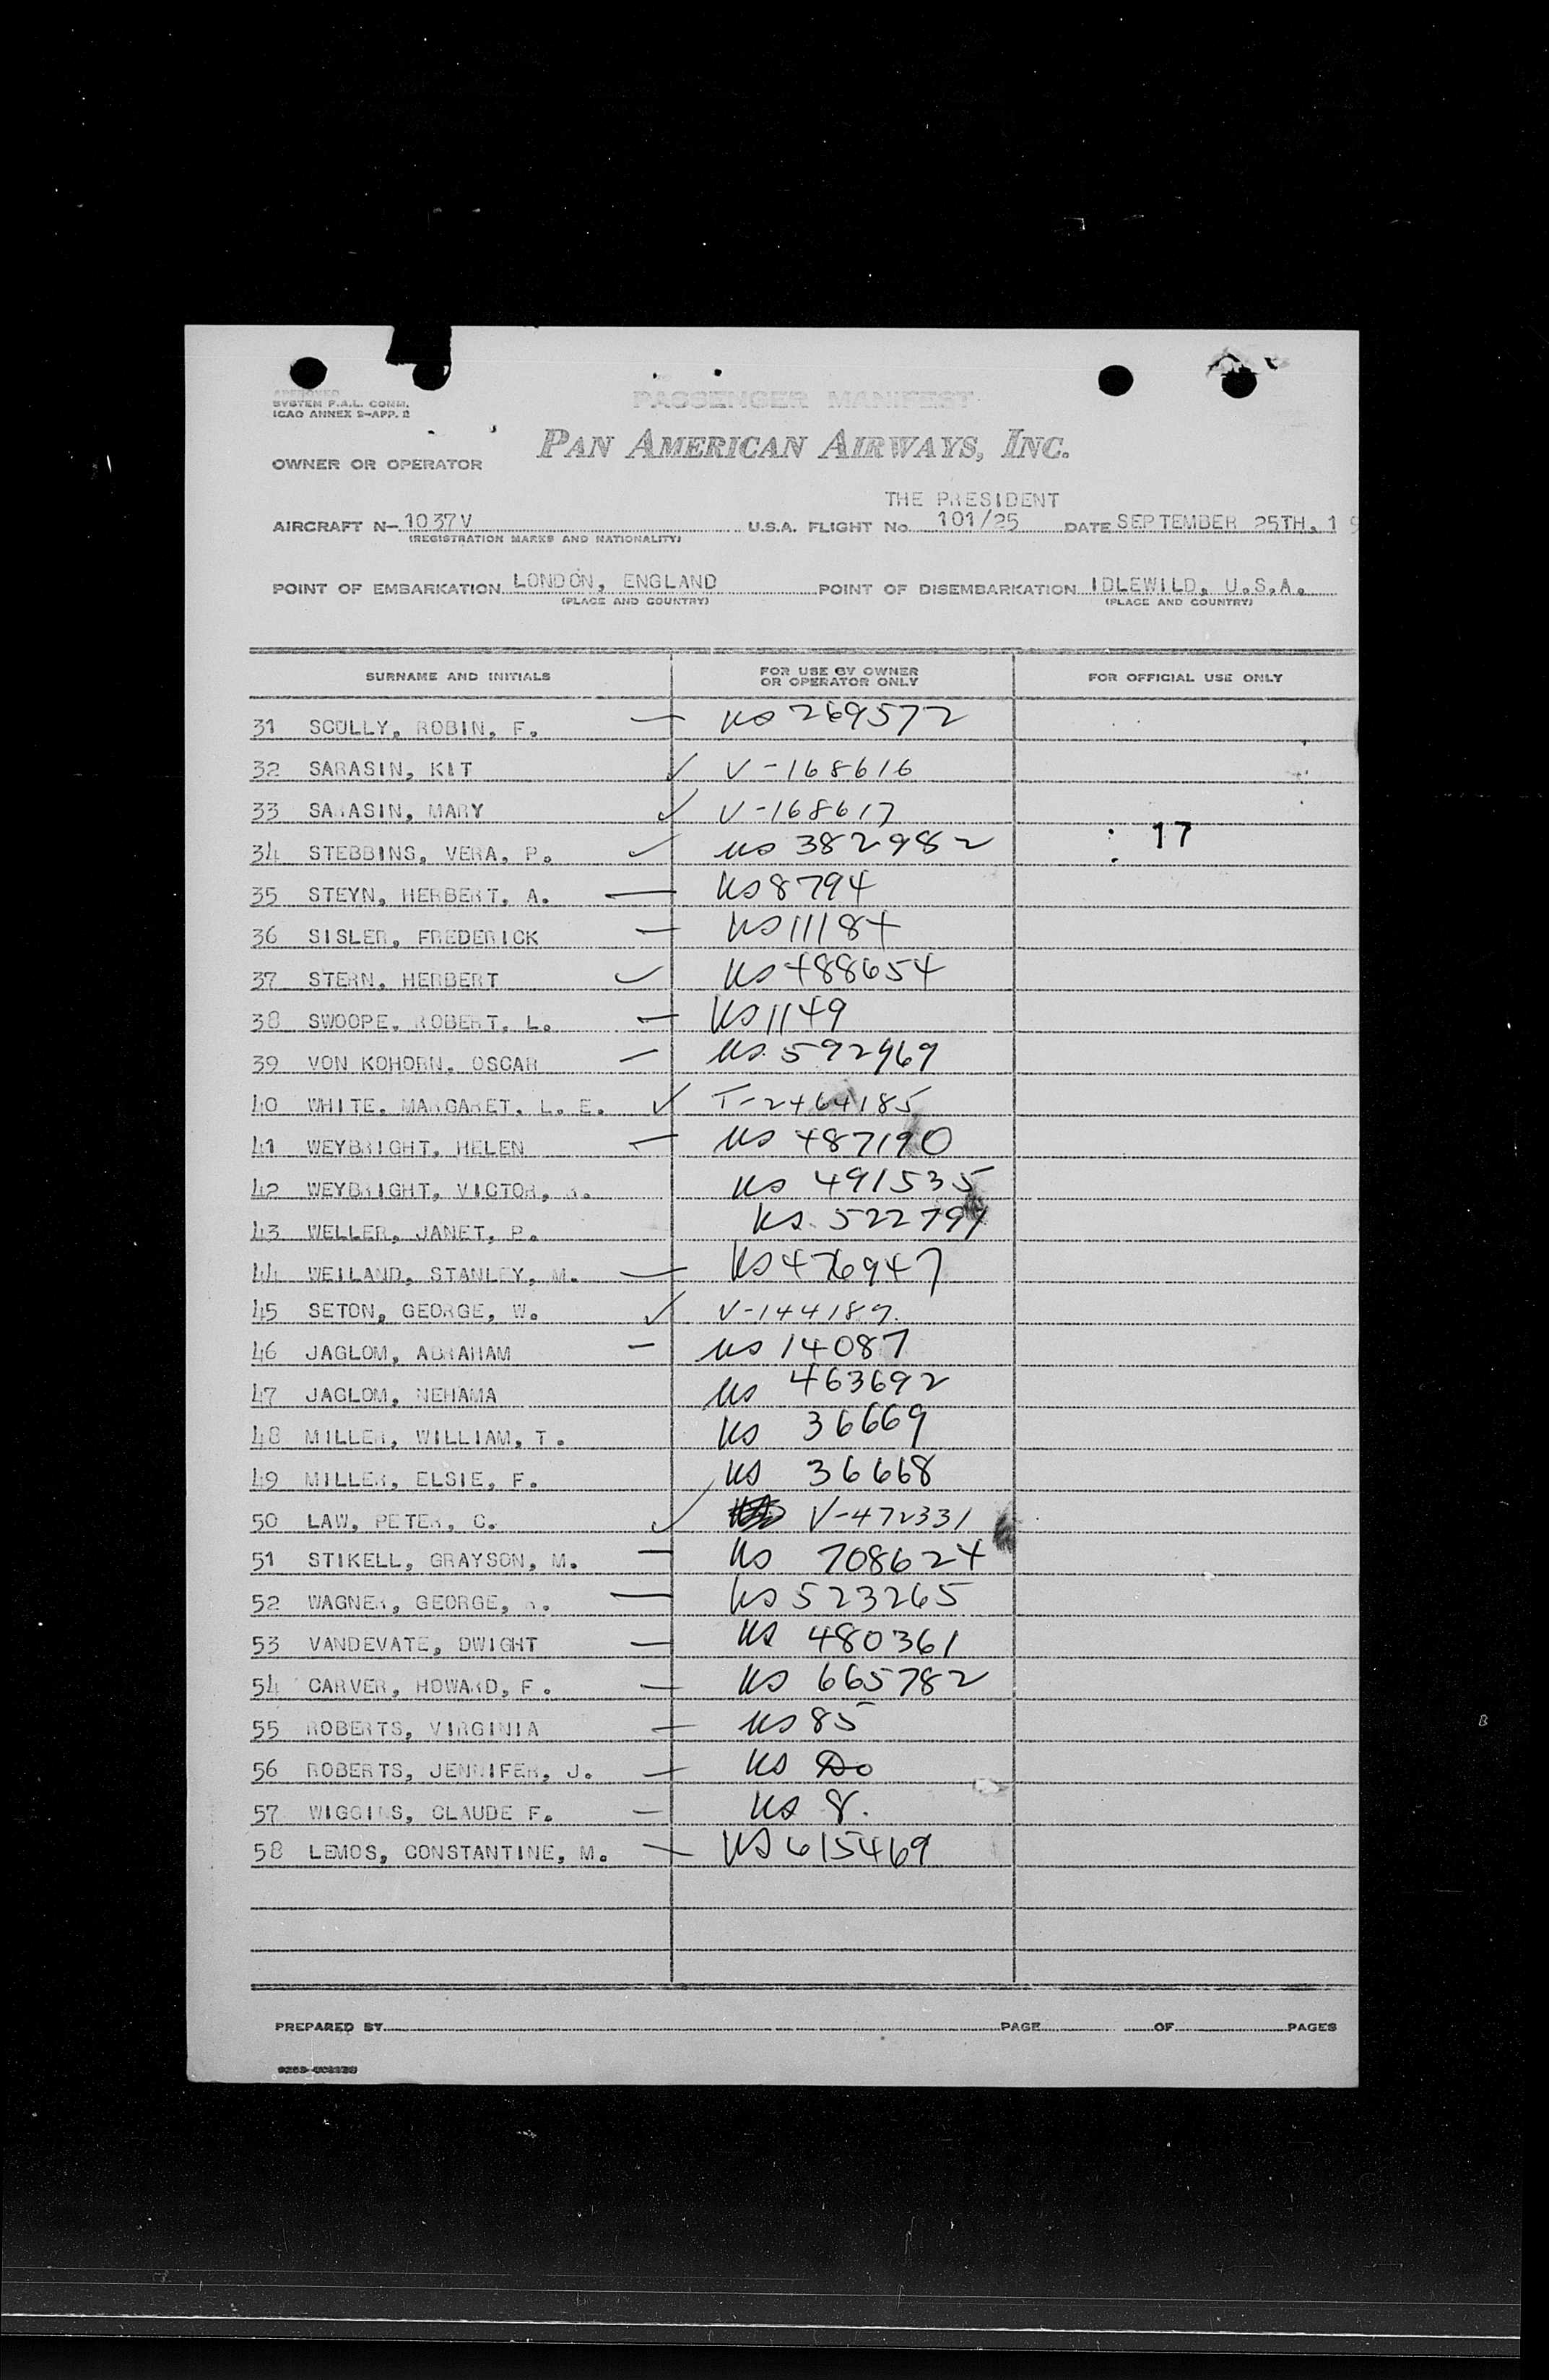 APPROVED
SYSTEM P.A.L. COMM.
ICAO ANNEX 9-APP. 2
PASSENGER MANIFEST
PAN AMERICAN AIRWAYS, INC.
OWNER OR OPERATOR
THE PRESIDENT
AIRCRAFT N- 1037V U.S.A. FLIGHT No. 101/25 DATE SEPTEMBER 25TH, 1
(REGISTRATION MARKS AND NATIONALITY)
POINT OF EMBARKATION LONDON, ENGLAND POINT OF DISEMBARKATION IDLEWILD, U.S.A.
(PLACE AND COUNTRY) (PLACE AND COUNTRY)
SURNAME AND INITIALS FOR USE BY OWNER OR OPERATOR ONLY FOR OFFICIAL USE ONLY
31 SCULLY, ROBIN, F. — US 269572
32 SARASIN, KIT ✓ V-168616
33 SARASIN, MARY ✓ V-168617
34 STEBBINS, VERA, P. ✓ US 382982 17
35 STEYN, HERBERT, A. — US 8794
36 SISLER, FREDERICK — US 11184
37 STERN, HERBERT ✓ US 488654
38 SWOOPE, ROBERT, L. — US 1149
39 VON KOHORN, OSCAR — US 592969
40 WHITE, MARGARET, L. E. ✓ T-2464185
41 WEYBRIGHT, HELEN — US 487190
42 WEYBRIGHT, VICTOR, R. US 491535
43 WELLER, JANET, P. US 522791
44 WEILAND, STANLEY, M. — US 476947
45 SETON, GEORGE, W. ✓ V-144189
46 JAGLOM, ABRAHAM — US 14087
47 JAGLOM, NEHAMA US 463692
48 MILLER, WILLIAM, T. US 36669
49 MILLER, ELSIE, F. US 36668
50 LAW, PETER, C. ✓ V-472331
51 STIKELL, GRAYSON, M. — US 708624
52 WAGNER, GEORGE, R. — US 523265
53 VANDEVATE, DWIGHT — US 480361
54 CARVER, HOWARD, F. — US 665782
55 ROBERTS, VIRGINIA — US 85
56 ROBERTS, JENNIFER, J. — US Do
57 WIGGINS, CLAUDE F. — US 8.
58 LEMOS, CONSTANTINE, M. — US 615469
PREPARED BY PAGE OF PAGES